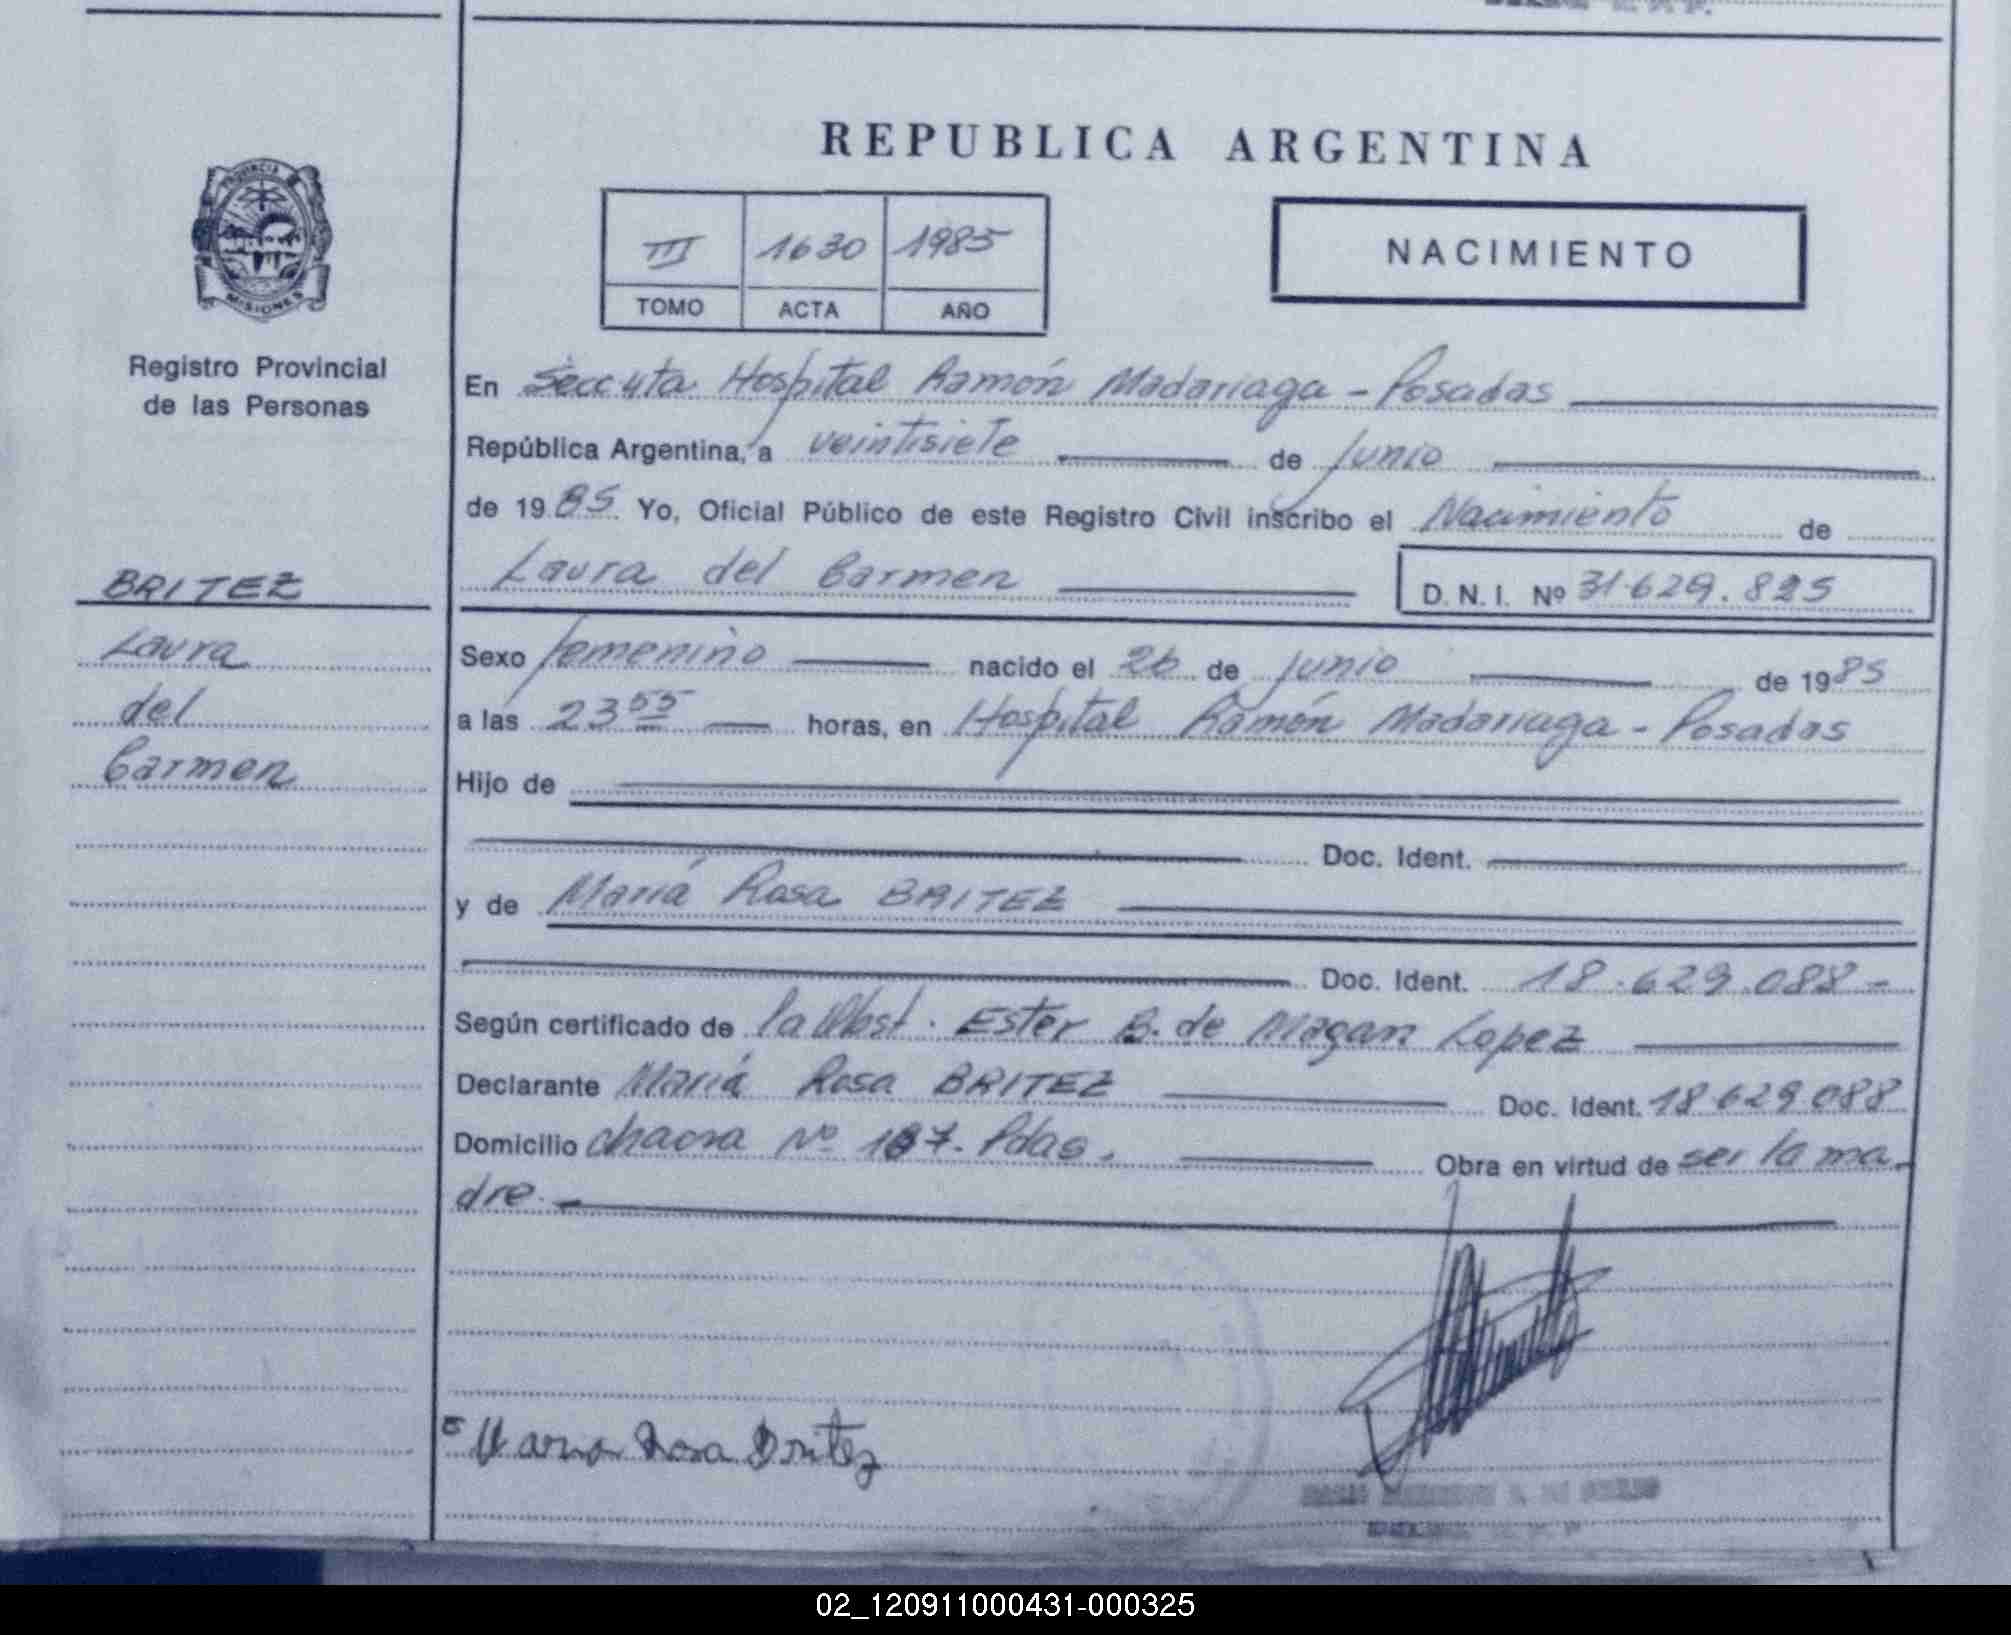 REPUBLICA ARGENTINA
PROVINCIA DE
MISIONES
III 1630 1985
TOMO ACTA AÑO
NACIMIENTO
Registro Provincial
de las Personas
BRITEZ
Laura
del
Carmen
En Secc 4ta Hospital Ramón Madariaga - Posadas
República Argentina, a veintisiete de Junio
de 1985 Yo, Oficial Público de este Registro Civil inscribo el Nacimiento de
Laura del Carmen D. N. I. Nº 31.629.825
Sexo femenino nacido el 26 de Junio de 1985
a las 23 55 horas, en Hospital Ramón Madariaga - Posadas
Hijo de
Doc. Ident.
y de María Rosa BRITEZ
Doc. Ident. 18.629.088-
Según certificado de la Obst. Ester B. de Magan Lopez
Declarante María Rosa BRITEZ Doc. Ident. 18.629.088
Domicilio chacra Nº 187. Pdas. Obra en virtud de ser la ma-
dre.-
Maria Rosa Britez
02_120911000431-000325